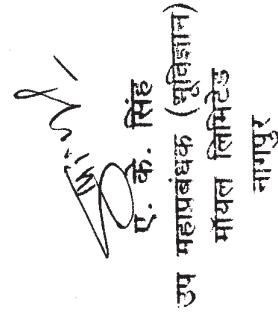 ए. के. सिंह
उप महाप्रबंधक (भूविज्ञान)
मॉयल लिमिटेड
नागपुर